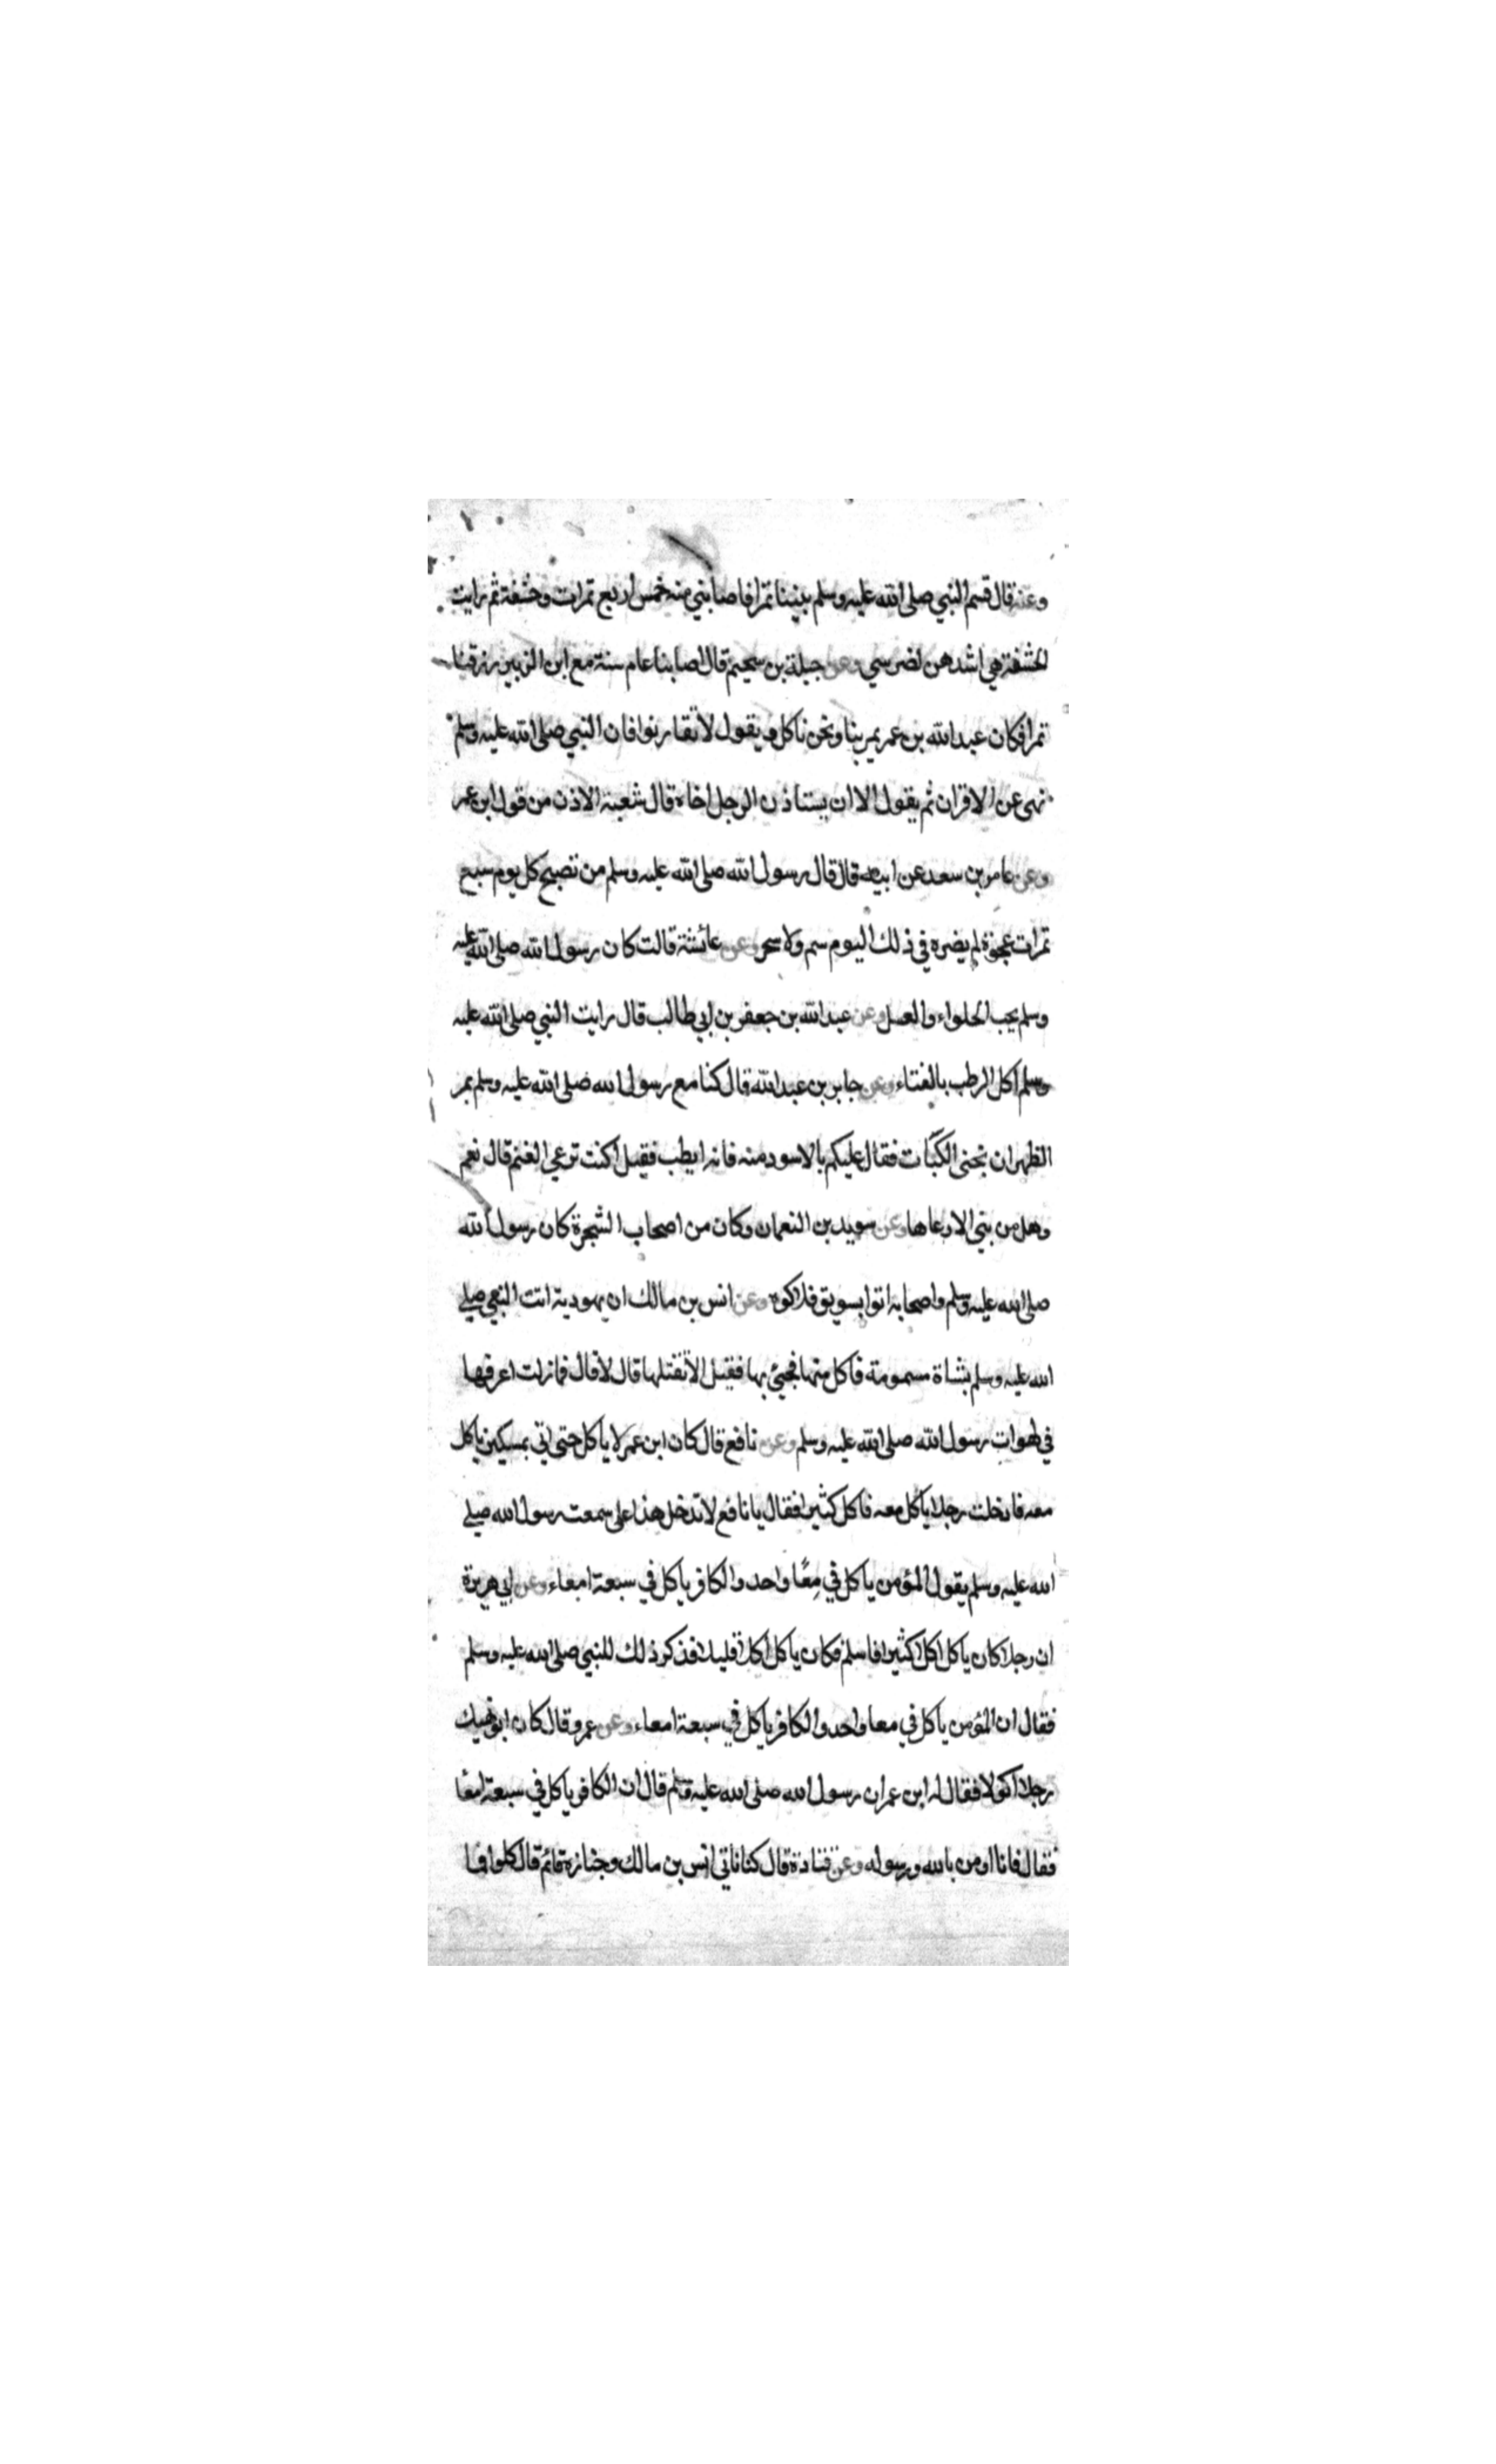 وعنه قال قسم النبي صلى الله عليه وسلم بيننا تمرا فاصابني منه خمس اربع تمرات وحشفة ثم رايت
الحشفة هي اشدهن لضرسي وعن جبلة بن سحيم قال اصابنا عام سنة مع ابن الزبير رزقنا
تمرا فكان عبد الله بن عمر يمر بنا ونحن ناكل ويقول لا تقارنوا فان النبي صلى الله عليه وسلم
نهى عن الاقران ثم يقول الا ان يستاذن الرجل اخاه قال شعبة الاذن من قول ابن عمر
وعن عامر بن سعد عن ابيه قال قال رسول الله صلى الله عليه وسلم من تصبح كل يوم سبع
تمرات عجوة لم يضره في ذلك اليوم سم ولا سحر وعن عائشة قالت كان رسول الله صلى الله عليه
وسلم يحب الحلواء والعسل وعن عبد الله بن جعفر بن ابي طالب قال رايت النبي صلى الله عليه
وسلم اكل الرطب بالقثاء وعن جابر بن عبد الله قال كنا مع رسول الله صلى الله عليه وسلم بمر
الظهران نجنى الكبّات فقال عليكم بالاسود منه فانه ايطب فقيل اكنت ترعي الغنم قال نعم
وهل من نبي الا رعاها وعن سويد بن النعمان وكان من اصحاب الشجرة كان رسول الله
صلى الله عليه وسلم واصحابه اتوا بسويق فلاكوه وعن انس بن مالك ان يهودية اتت النبي صلى
الله عليه وسلم بشاة مسمومة فاكل منها فجيئ بها فقيل الا تقتلها قال لا قال فما زلت اعرفها
في لهوات رسول الله صلى الله عليه وسلم وعن نافع قال كان ابن عمر لا ياكل حتى اتي بمسكين ياكل
معه فادخلت رجلا ياكل معه فاكل كثيرا فقال يا نافع لا تدخل هذا على سمعت رسول الله صلى
الله عليه وسلم يقول المؤمن ياكل في مِعًا واحد والكافر ياكل في سبعة امعاء وعن ابي هريرة
ان رجلا كان ياكل اكلا كثيرا فاسلم فكان ياكل اكلا قليلا فذكر ذلك للنبي صلى الله عليه وسلم
فقال ان المؤمن ياكل في معا واحد والكافر ياكل في سبعة امعاء وعن عمرو قال كان ابو نهيك
رجلا اكولا فقال له ابن عمر ان رسول الله صلى الله عليه وسلم قال ان الكافر ياكل في سبعة امعا
فقال فانا اومن بالله ورسوله وعن قتادة قال كنا ناتي انس بن مالك وخبازه قائم قال كلوا فما